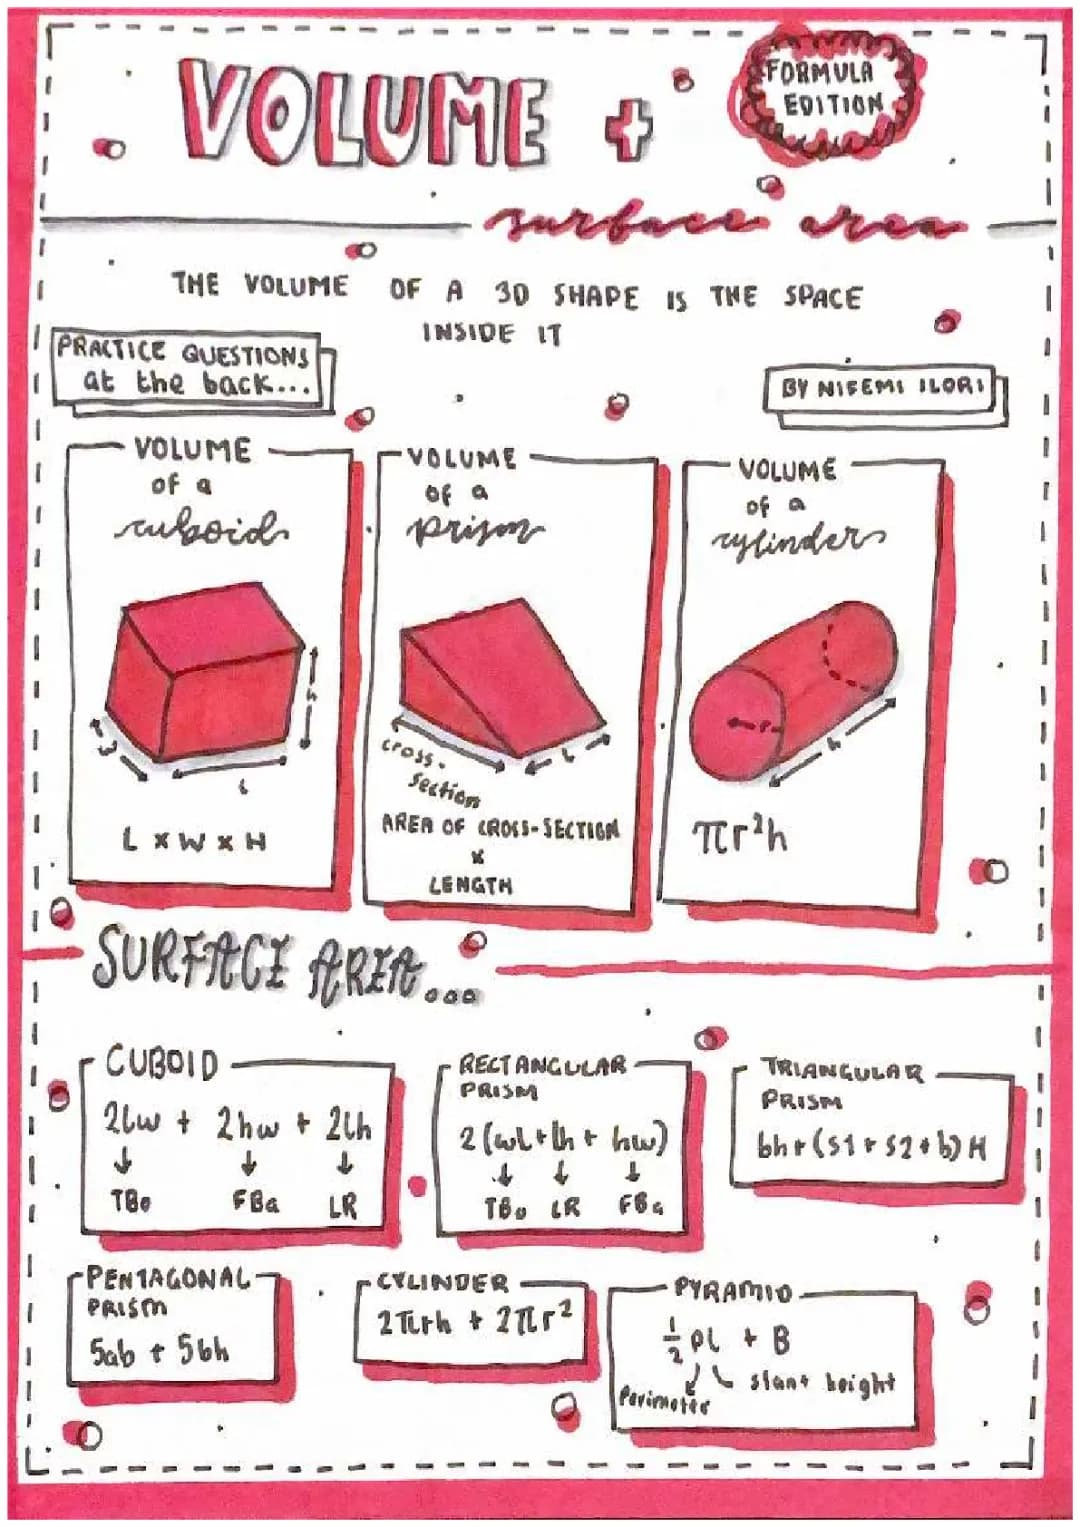 VOLUME +
FORMULA
EDITION
surface area
THE VOLUME OF A 3D SHAPE IS THE SPACE
INSIDE IT
PRACTICE QUESTIONS
at the back...
BY NIFEMI ILORI
VOLUME
of a
cuboid
h
w
L
L x W x H
VOLUME
of a
prism
cross-
section
L
AREA OF CROSS-SECTION
x
LENGTH
VOLUME
of a
cylinder
r
h
πr²h
SURFACE AREA...
CUBOID
2lw + 2hw + 2lh
TBo FBa LR
RECTANGULAR
PRISM
2(wl+lh+ hw)
TBo LR FBa
TRIANGULAR
PRISM
bh+(s1+s2+b)H
PENTAGONAL
PRISM
5ab + 5bh
CYLINDER
2πrh + 2πr²
PYRAMID
½pl + B
Perimeter
slant height